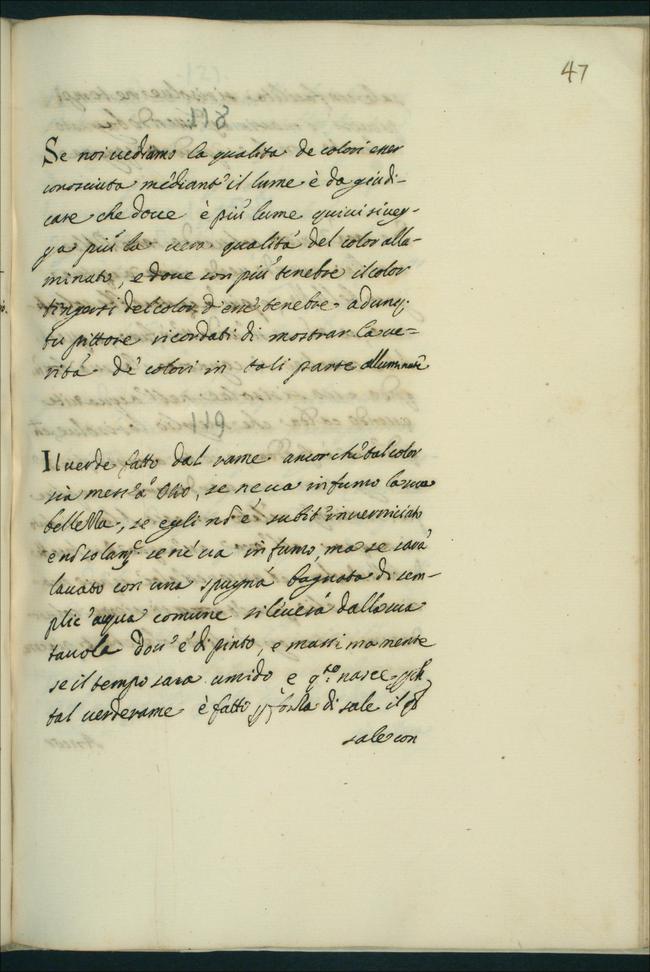 47
118
Se noi uediamo la qualità de colori esser
conosciuta mediant' il lume è da giudi-
care che doue è più lume quiui si ueg-
ga più la uera qualità del color allu-
minato, e doue son più tenebre il color
tingersi del color d'esse tenebre. adunq;
tu pittore ricordati di mostrar la ue-
rità de' colori in tali parte alluminate
119
Il uerde fatto dal rame ancor ch' tal color
sia mess' à olio, se ne ua in fumo la sua
bellezza, se egli nō è subit' inuerniciato
e nō solam.te se ne ua in fumo, ma se sarà
lauato con una spugna bagnata di sem-
plic' aqua comune si leuerà dalla sua
tauola dou' è dipinto, e massimamente
se il tempo sara umido e q.to nasce
tal uerderame è fatto p forza di sale il ql
sale con